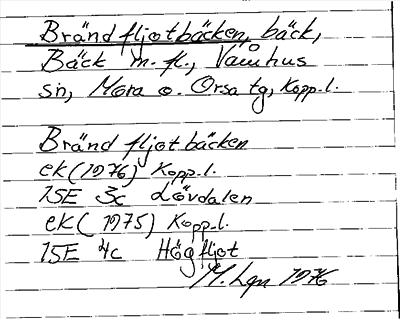 Brändfljotbäcken, bäck,
Bäck m. fl., Våmhus
sn, Mora o. Orsa tg, Kopp. l.
Bränd fljotbäcken
ek (1976) Kopp. l.
15E 3c Lövdalen
ek (1975) Kopp. l.
15E 4c Högfljot
M. Lgn 1976